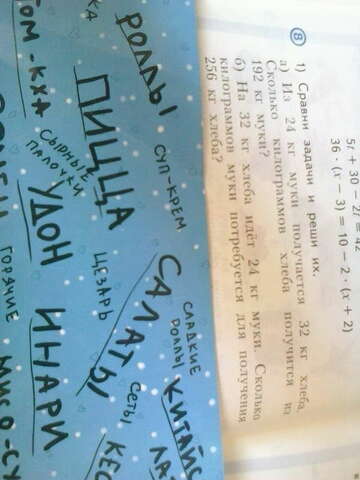 56 - 30 - 2 + = 42
36 · (x - 3) = 10 - 2 · (x + 2)
8
1) Сравни задачи и реши их.
а) Из 24 кг муки получается 32 кг хлеба.
Сколько килограммов хлеба получится из
192 кг муки?
б) На 32 кг хлеба идёт 24 кг муки. Сколько
килограммов муки потребуется для получения
256 кг хлеба?
РОЛЛЫ
СУП-КРЕМ
СЛАДКИЕ
РОЛЛЫ
КИТАЙС
ПИЦЦА
САЛАТЫ
ЦЕЗАРЬ
СЕТЫ
ТОМ-КХА
СЫРНЫЕ
ПАЛОЧКИ
УДОН
ИНАРИ
ГОРЯЧИЕ
МИСО-СУ